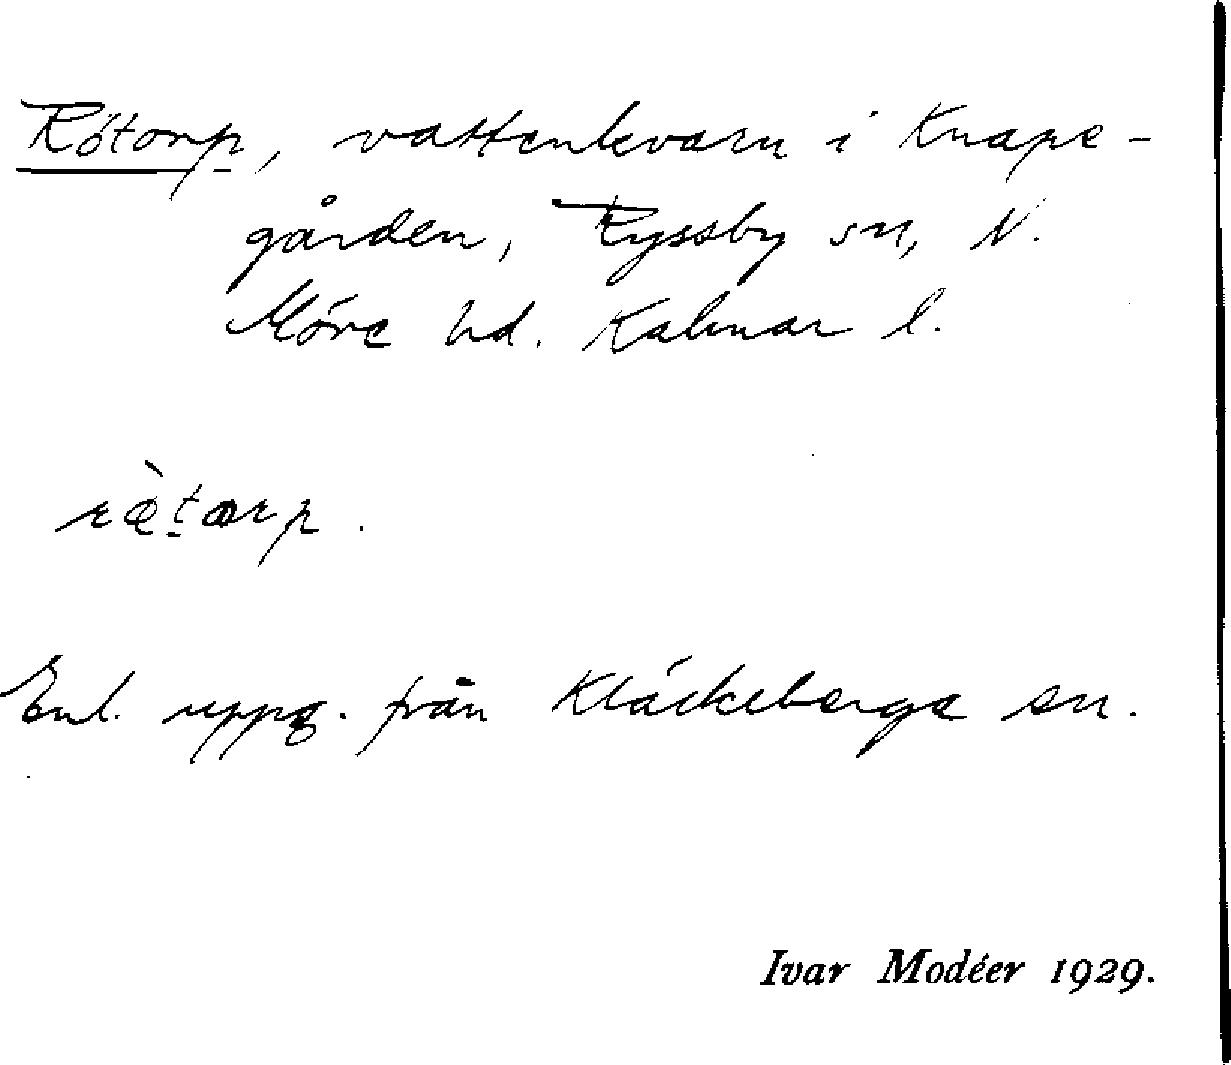 Rötorp, vattenkvarn i Knape-
gården, Ryssby sn, N.
Möre hd. Kalmar l.
Enl. uppg. från Kläckeberga sn.
Ivar Modéer 1929.